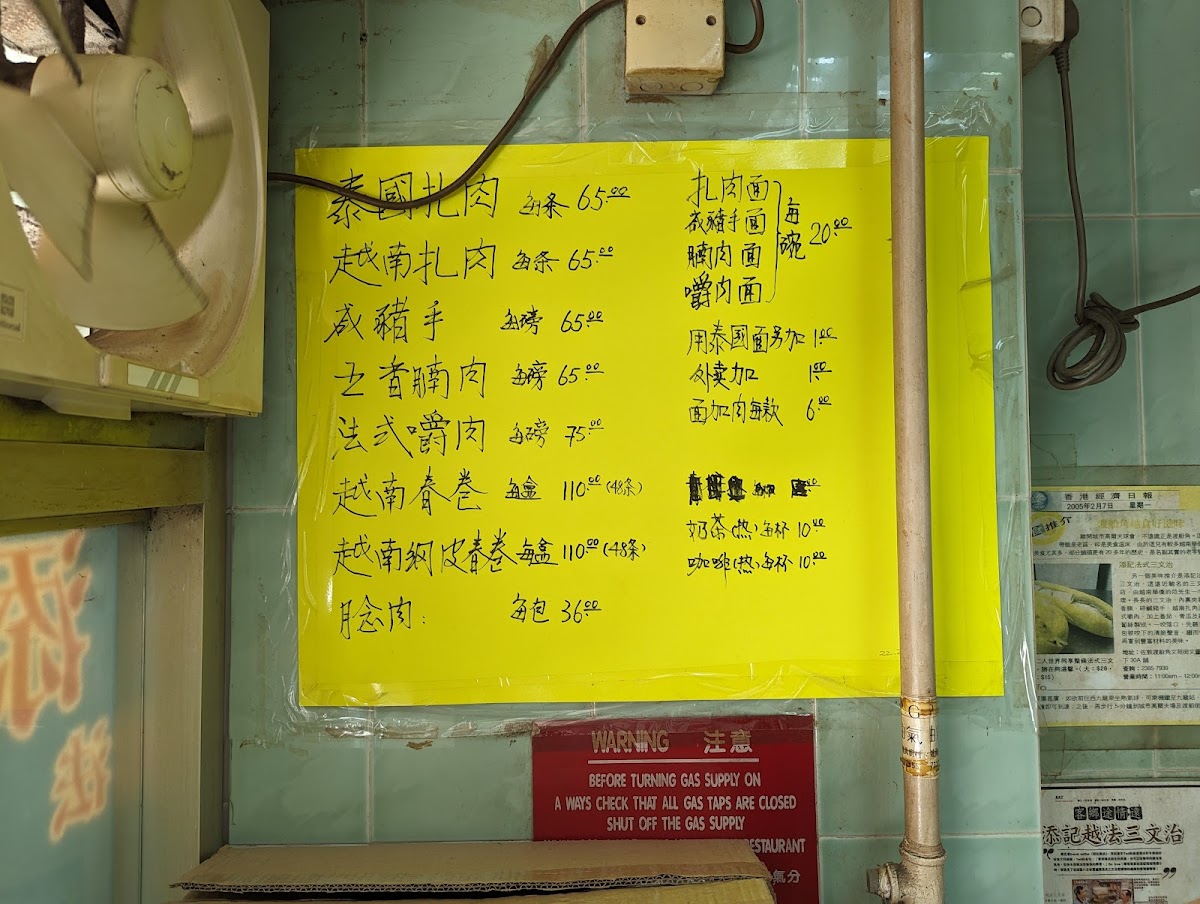 泰國扎肉 每条 65.00
越南扎肉 每条 65.00
咸豬手 每磅 65.00
五香腩肉 每磅 65.00
法式嚼肉 每磅 75.00
越南春卷 每盒 110.00 (48条)
越南網皮春卷 每盒 110.00 (48条)
腍肉: 每包 36.00
扎肉面
咸豬手面
腩肉面
嚼肉面
每碗 20.00
用泰國面另加 1.00
外卖加 1.00
面加肉每款 6.00
奶茶(热)每杯 10.00
咖啡(热)每杯 10.00
WARNING 注意
BEFORE TURNING GAS SUPPLY ON
A WAYS CHECK THAT ALL GAS TAPS ARE CLOSED
SHUT OFF THE GAS SUPPLY
ESTAURANT
氣分
香港經濟日報
2005年2月7日 星期一
推介
添記法式三文治
地址:佐敦渡船角文苑街文
下30A舖
查詢:2385 7939
營業時間:11:00am–12:00
添記越法三文治
添
法